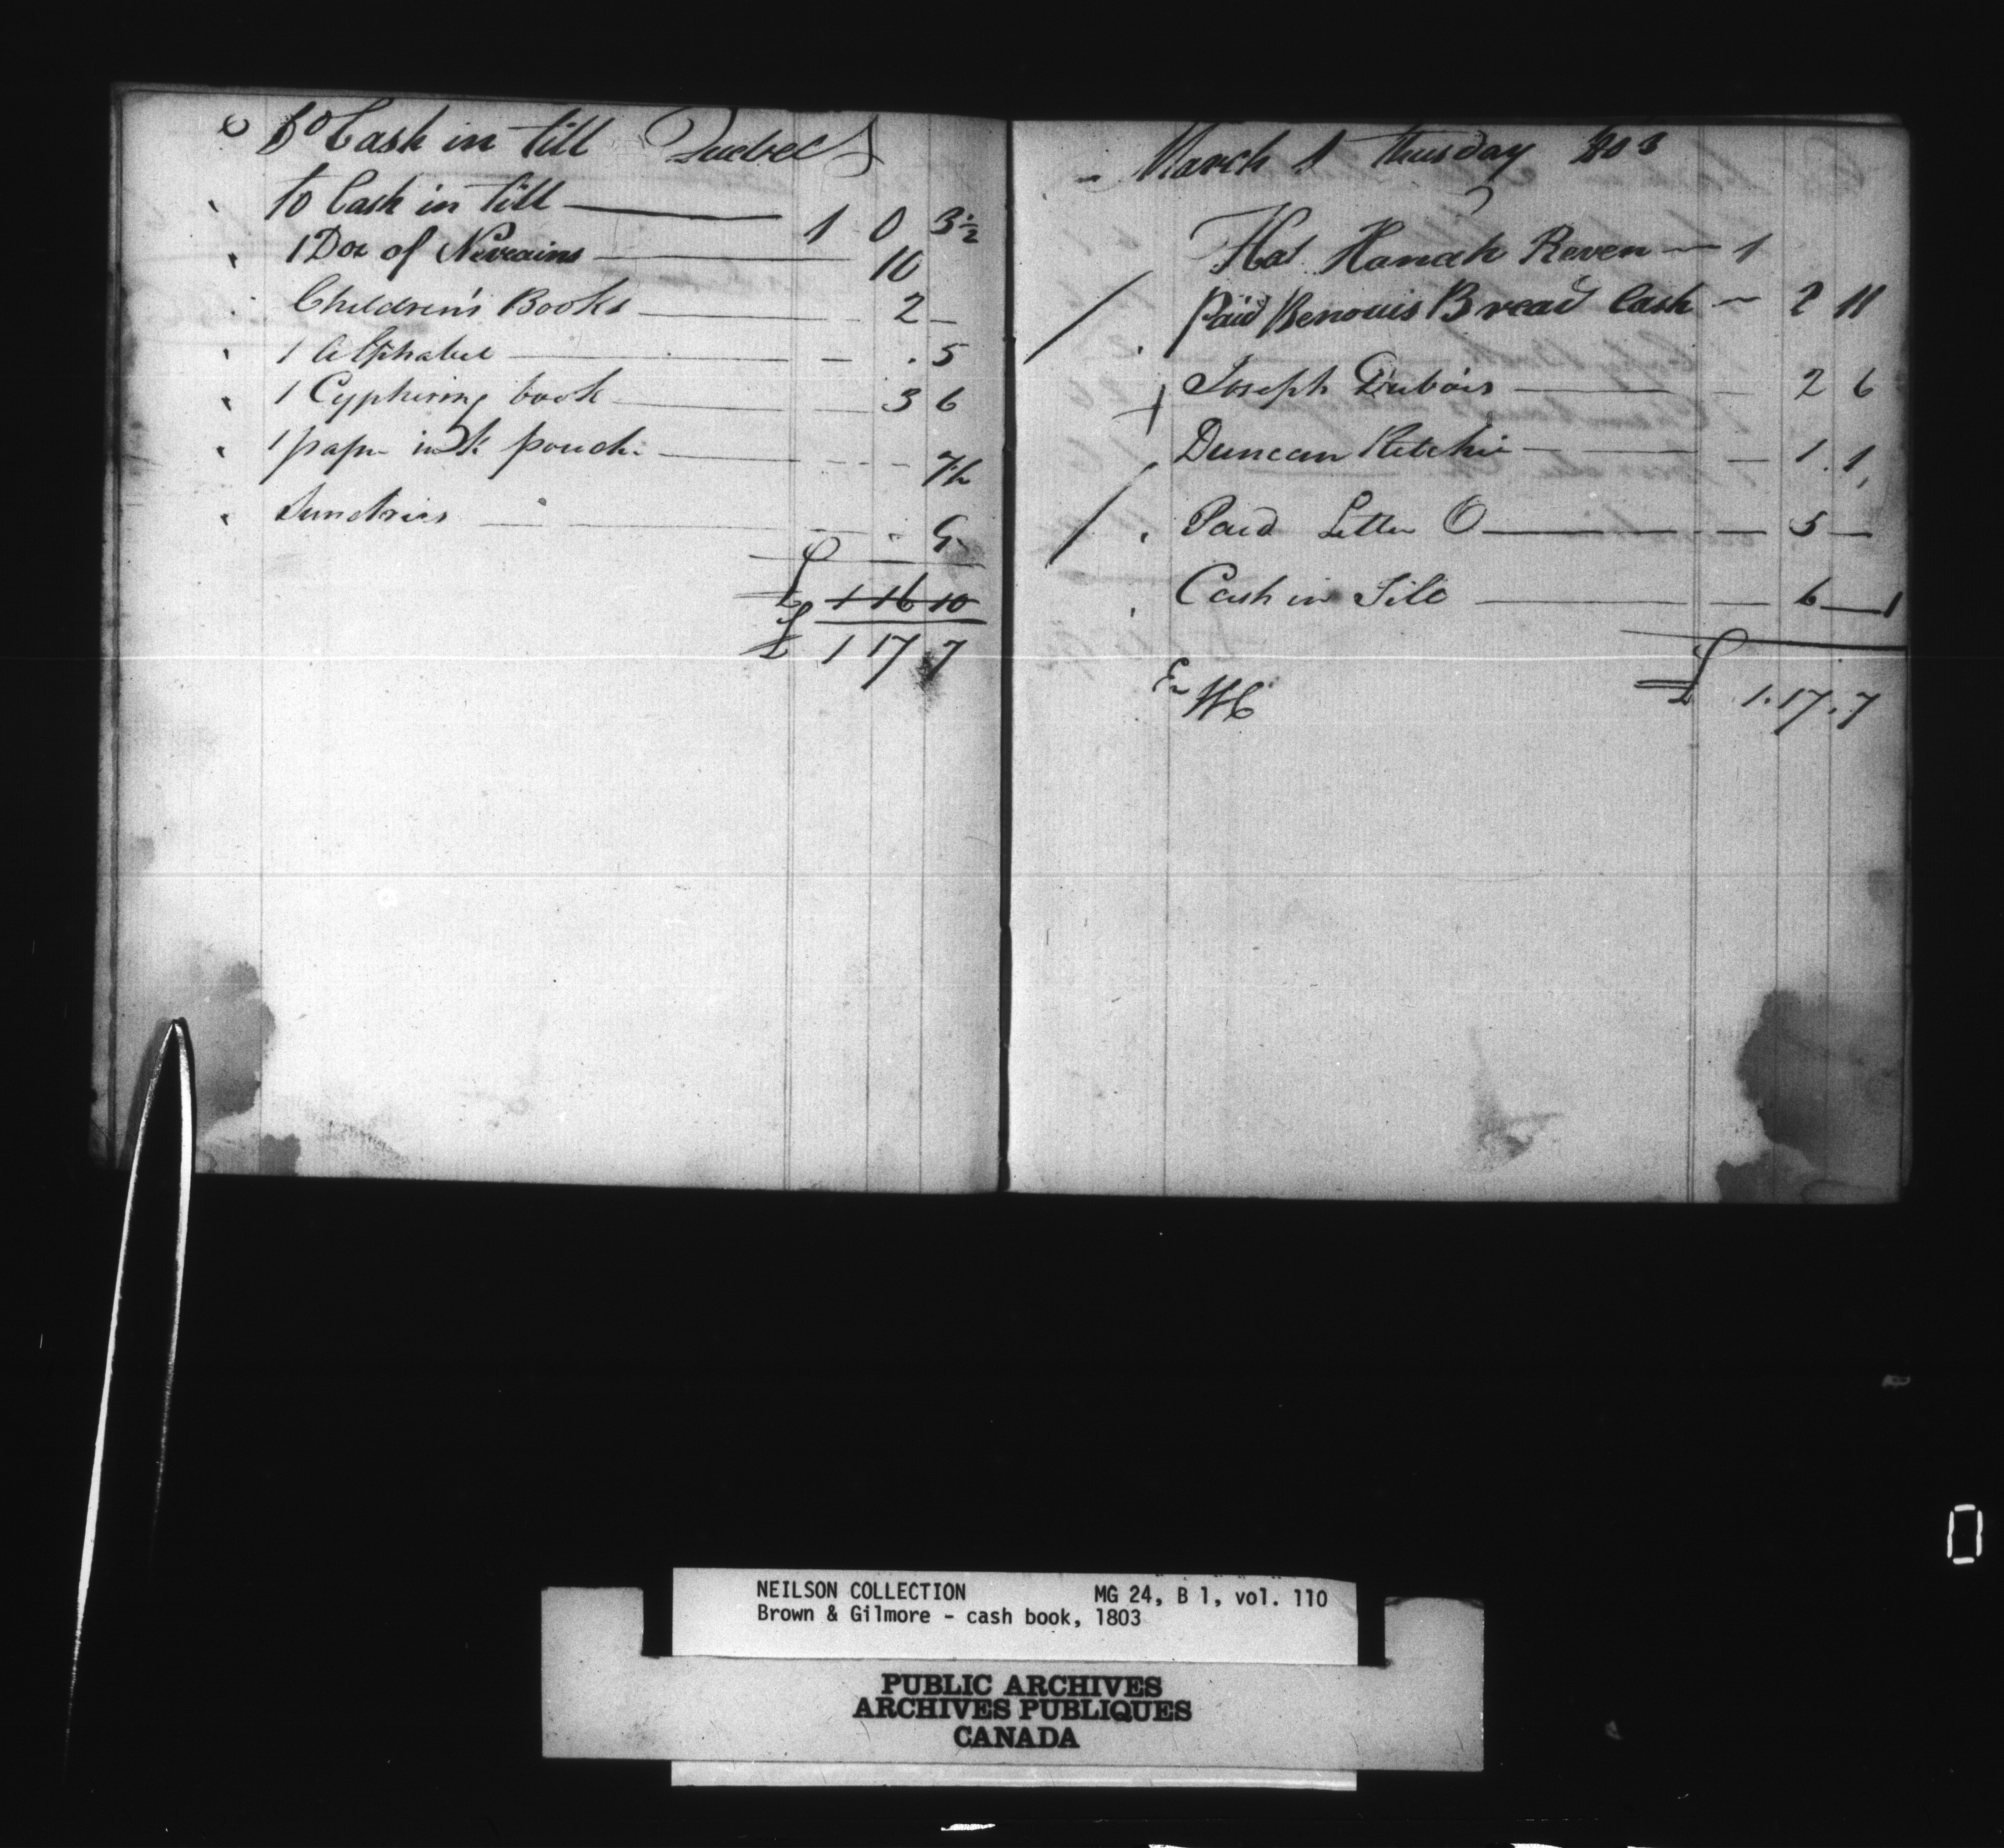 to Cash in till Quebec
to Cash in till 1 0 3½
1 Doz of Neuvains 10
Children's Books 2 —
1 Alphabet . 5
1 Cyphering book 3 6
1 paper ink powder 7½
Sundries 9
£ 1 16 10
£ 1 17 7
March 1 tuesday 1803
Hat Hanah Reven 1
paid Benouis Bread Cash 2 11
Joseph Dubois 2 6
Duncan Ritchie 1 . 1
Paid Letter O 5 —
Cash in Till 6 — 1
En WC
£ 1.17.7
NEILSON COLLECTION MG 24, B 1, vol. 110
Brown & Gilmore - cash book, 1803
PUBLIC ARCHIVES
ARCHIVES PUBLIQUES
CANADA